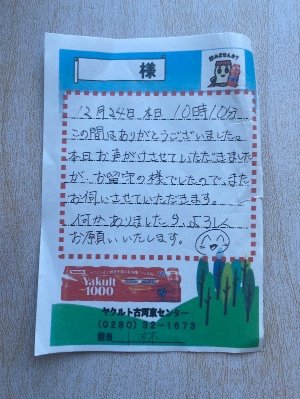 飲みませんか?
様
12月24日 本日 10時10分
この間はありがとうございました。
本日お声がけさせていただきました
が、お留守の様でしたので、また
お伺いさせていただきます。
何かありましたら、よろしく
お願いいたします。
Yakult
1000
ヤクルト古河東センター
(0280) 32-1673
担当 小林